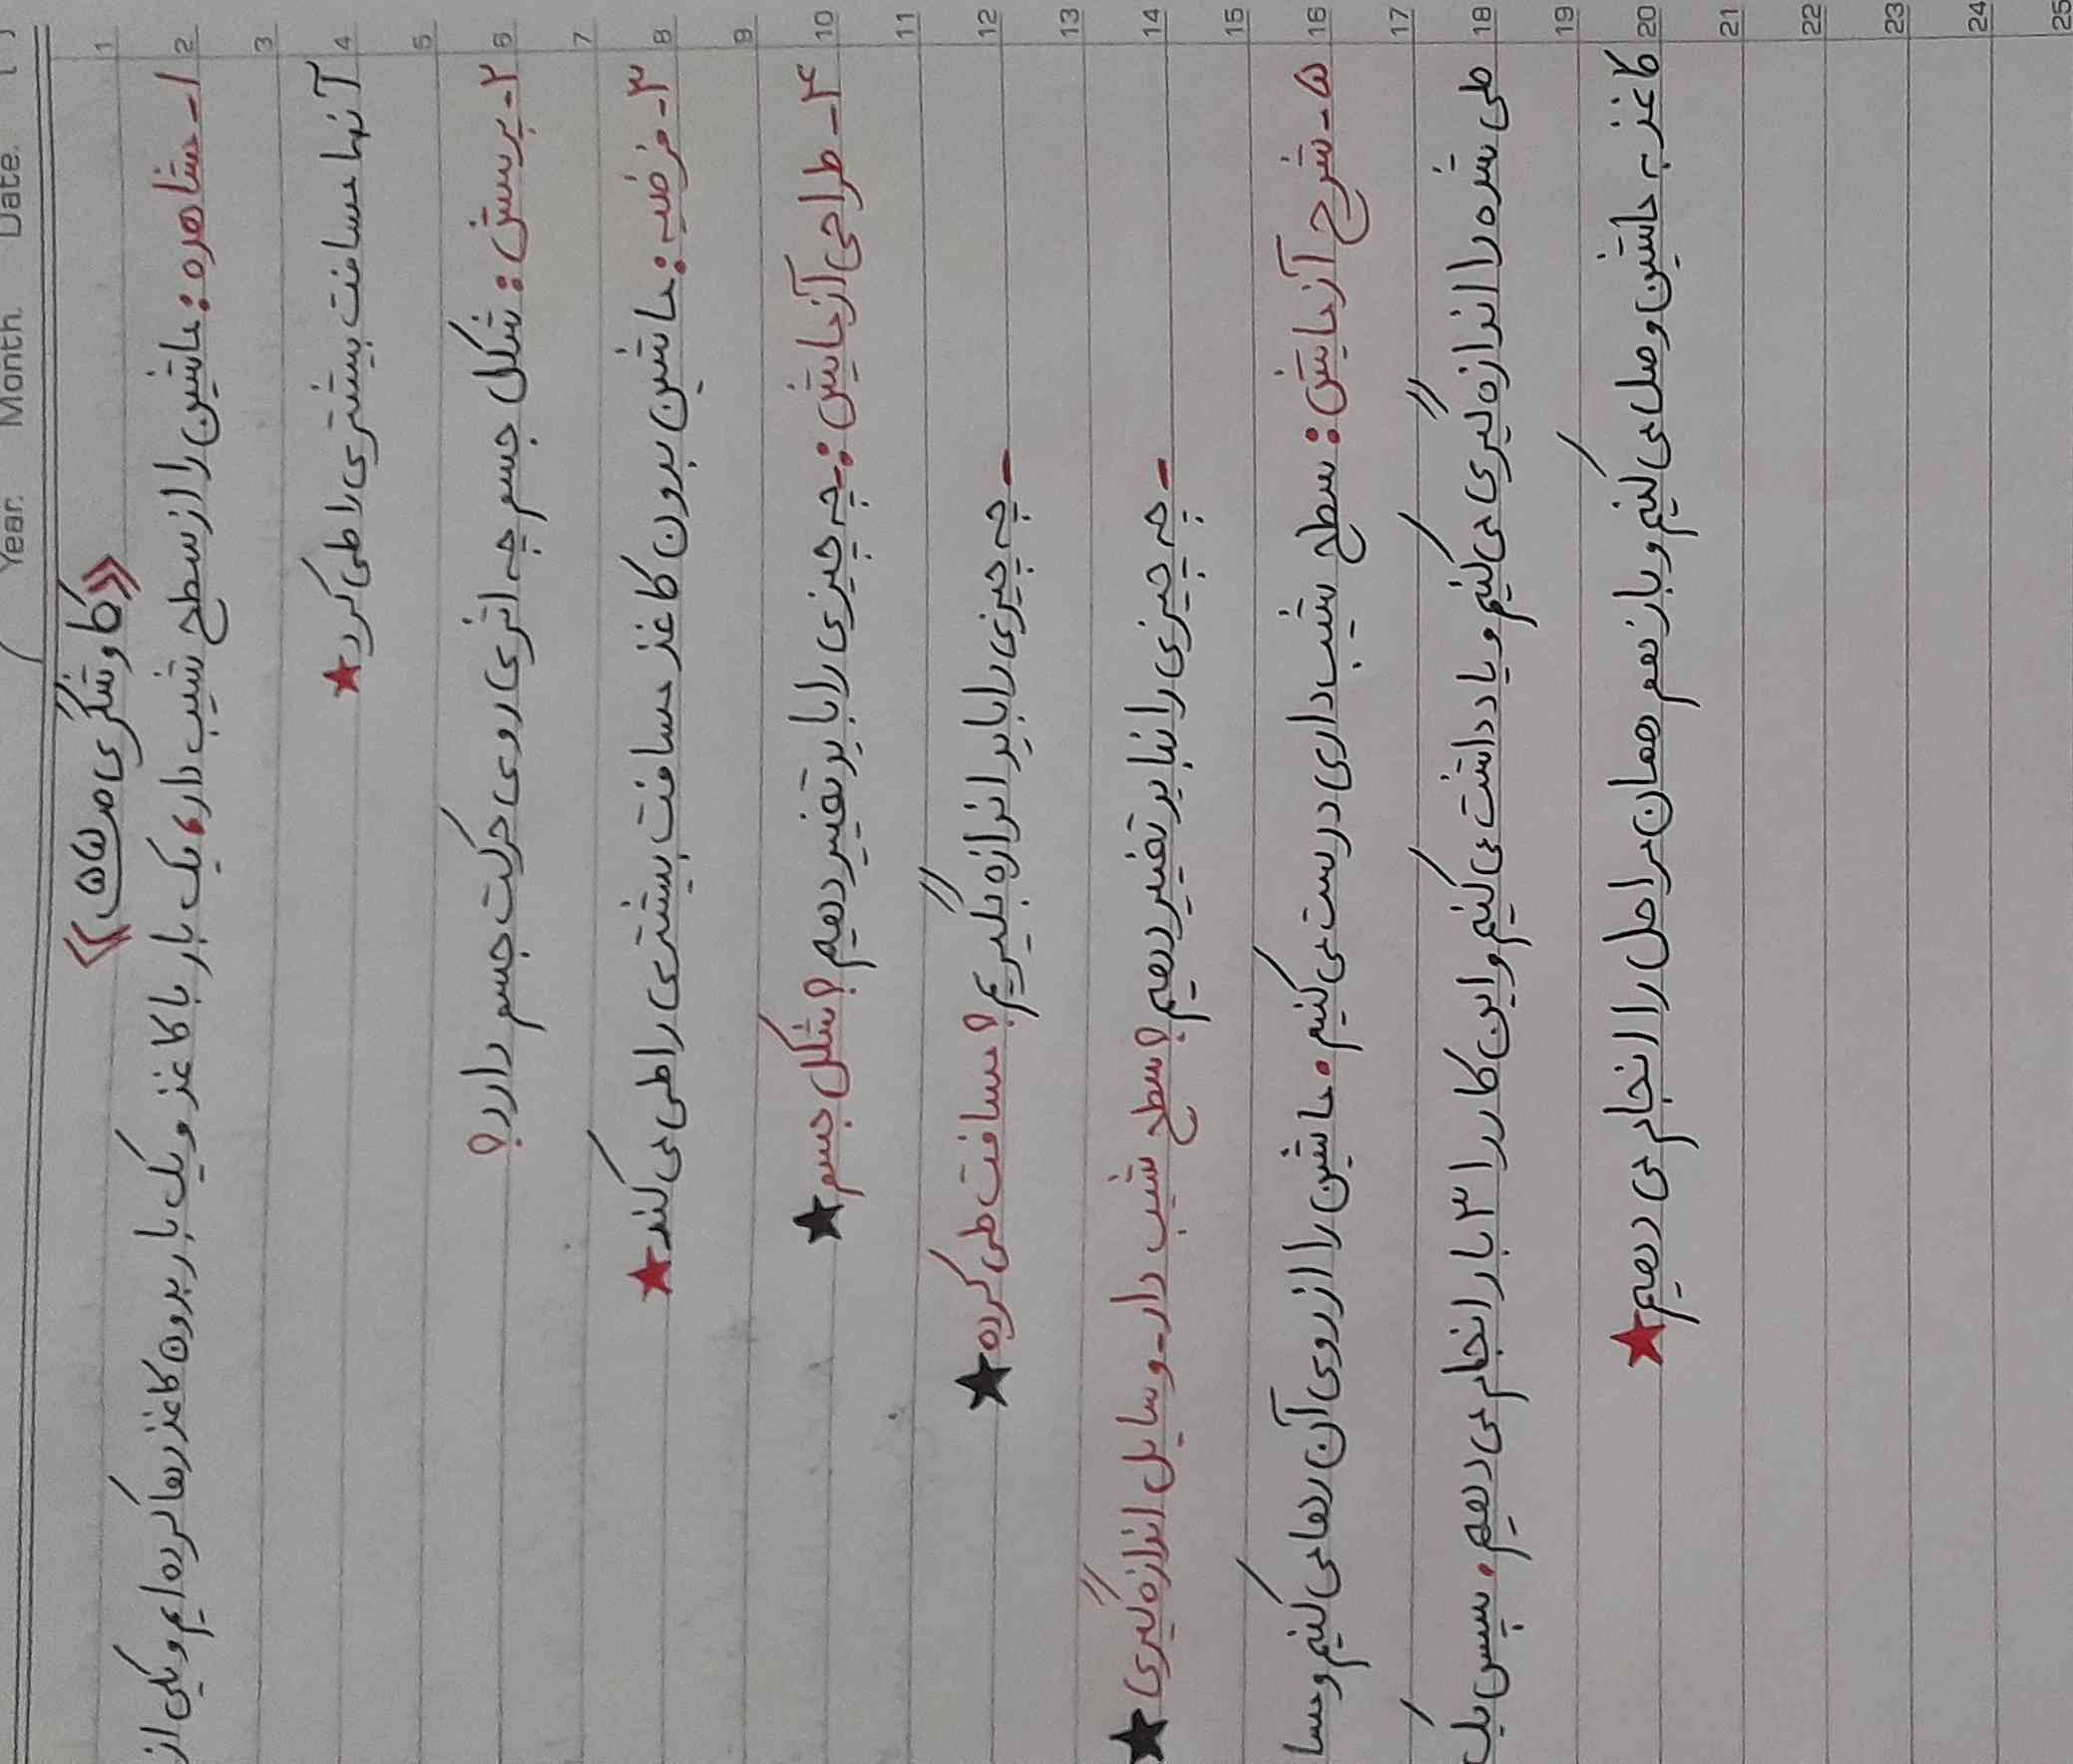 Year. Month. Date. ( )
«کاوشگری ص ۵۵»
۱- مشاهده: ماشین را از سطح شیب دار، یک بار با کاغذ و یک بار بدون کاغذ رها کرده ایم و یکی از
آنها مسافت بیشتری را طی کرد★
۲- پرسش: شکل جسم چه اثری روی حرکت جسم دارد؟
۳- فرضیه: ماشین بدون کاغذ مسافت بیشتری را طی می کند★
۴- طراحی آزمایش: - چه چیزی را باید تغییر دهیم؟ شکل جسم★
- چه چیزی را باید اندازه بگیریم؟ مسافت طی کرده★
- چه چیزی را نباید تغییر دهیم؟ سطح شیب دار - وسایل اندازه گیری★
۵- شرح آزمایش: سطح شیب داری درست می کنیم. ماشین را از روی آن رها می کنیم و مسا
طی شده را اندازه گیری می کنیم و یادداشت می کنیم و این کار را ۳ بار انجام می دهیم. سپس یک
کاغذ به ماشین وصل می کنیم و باز هم همان مراحل را انجام می دهیم★
1
2
3
4
5
6
7
8
9
10
11
12
13
14
15
16
17
18
19
20
21
22
23
24
25